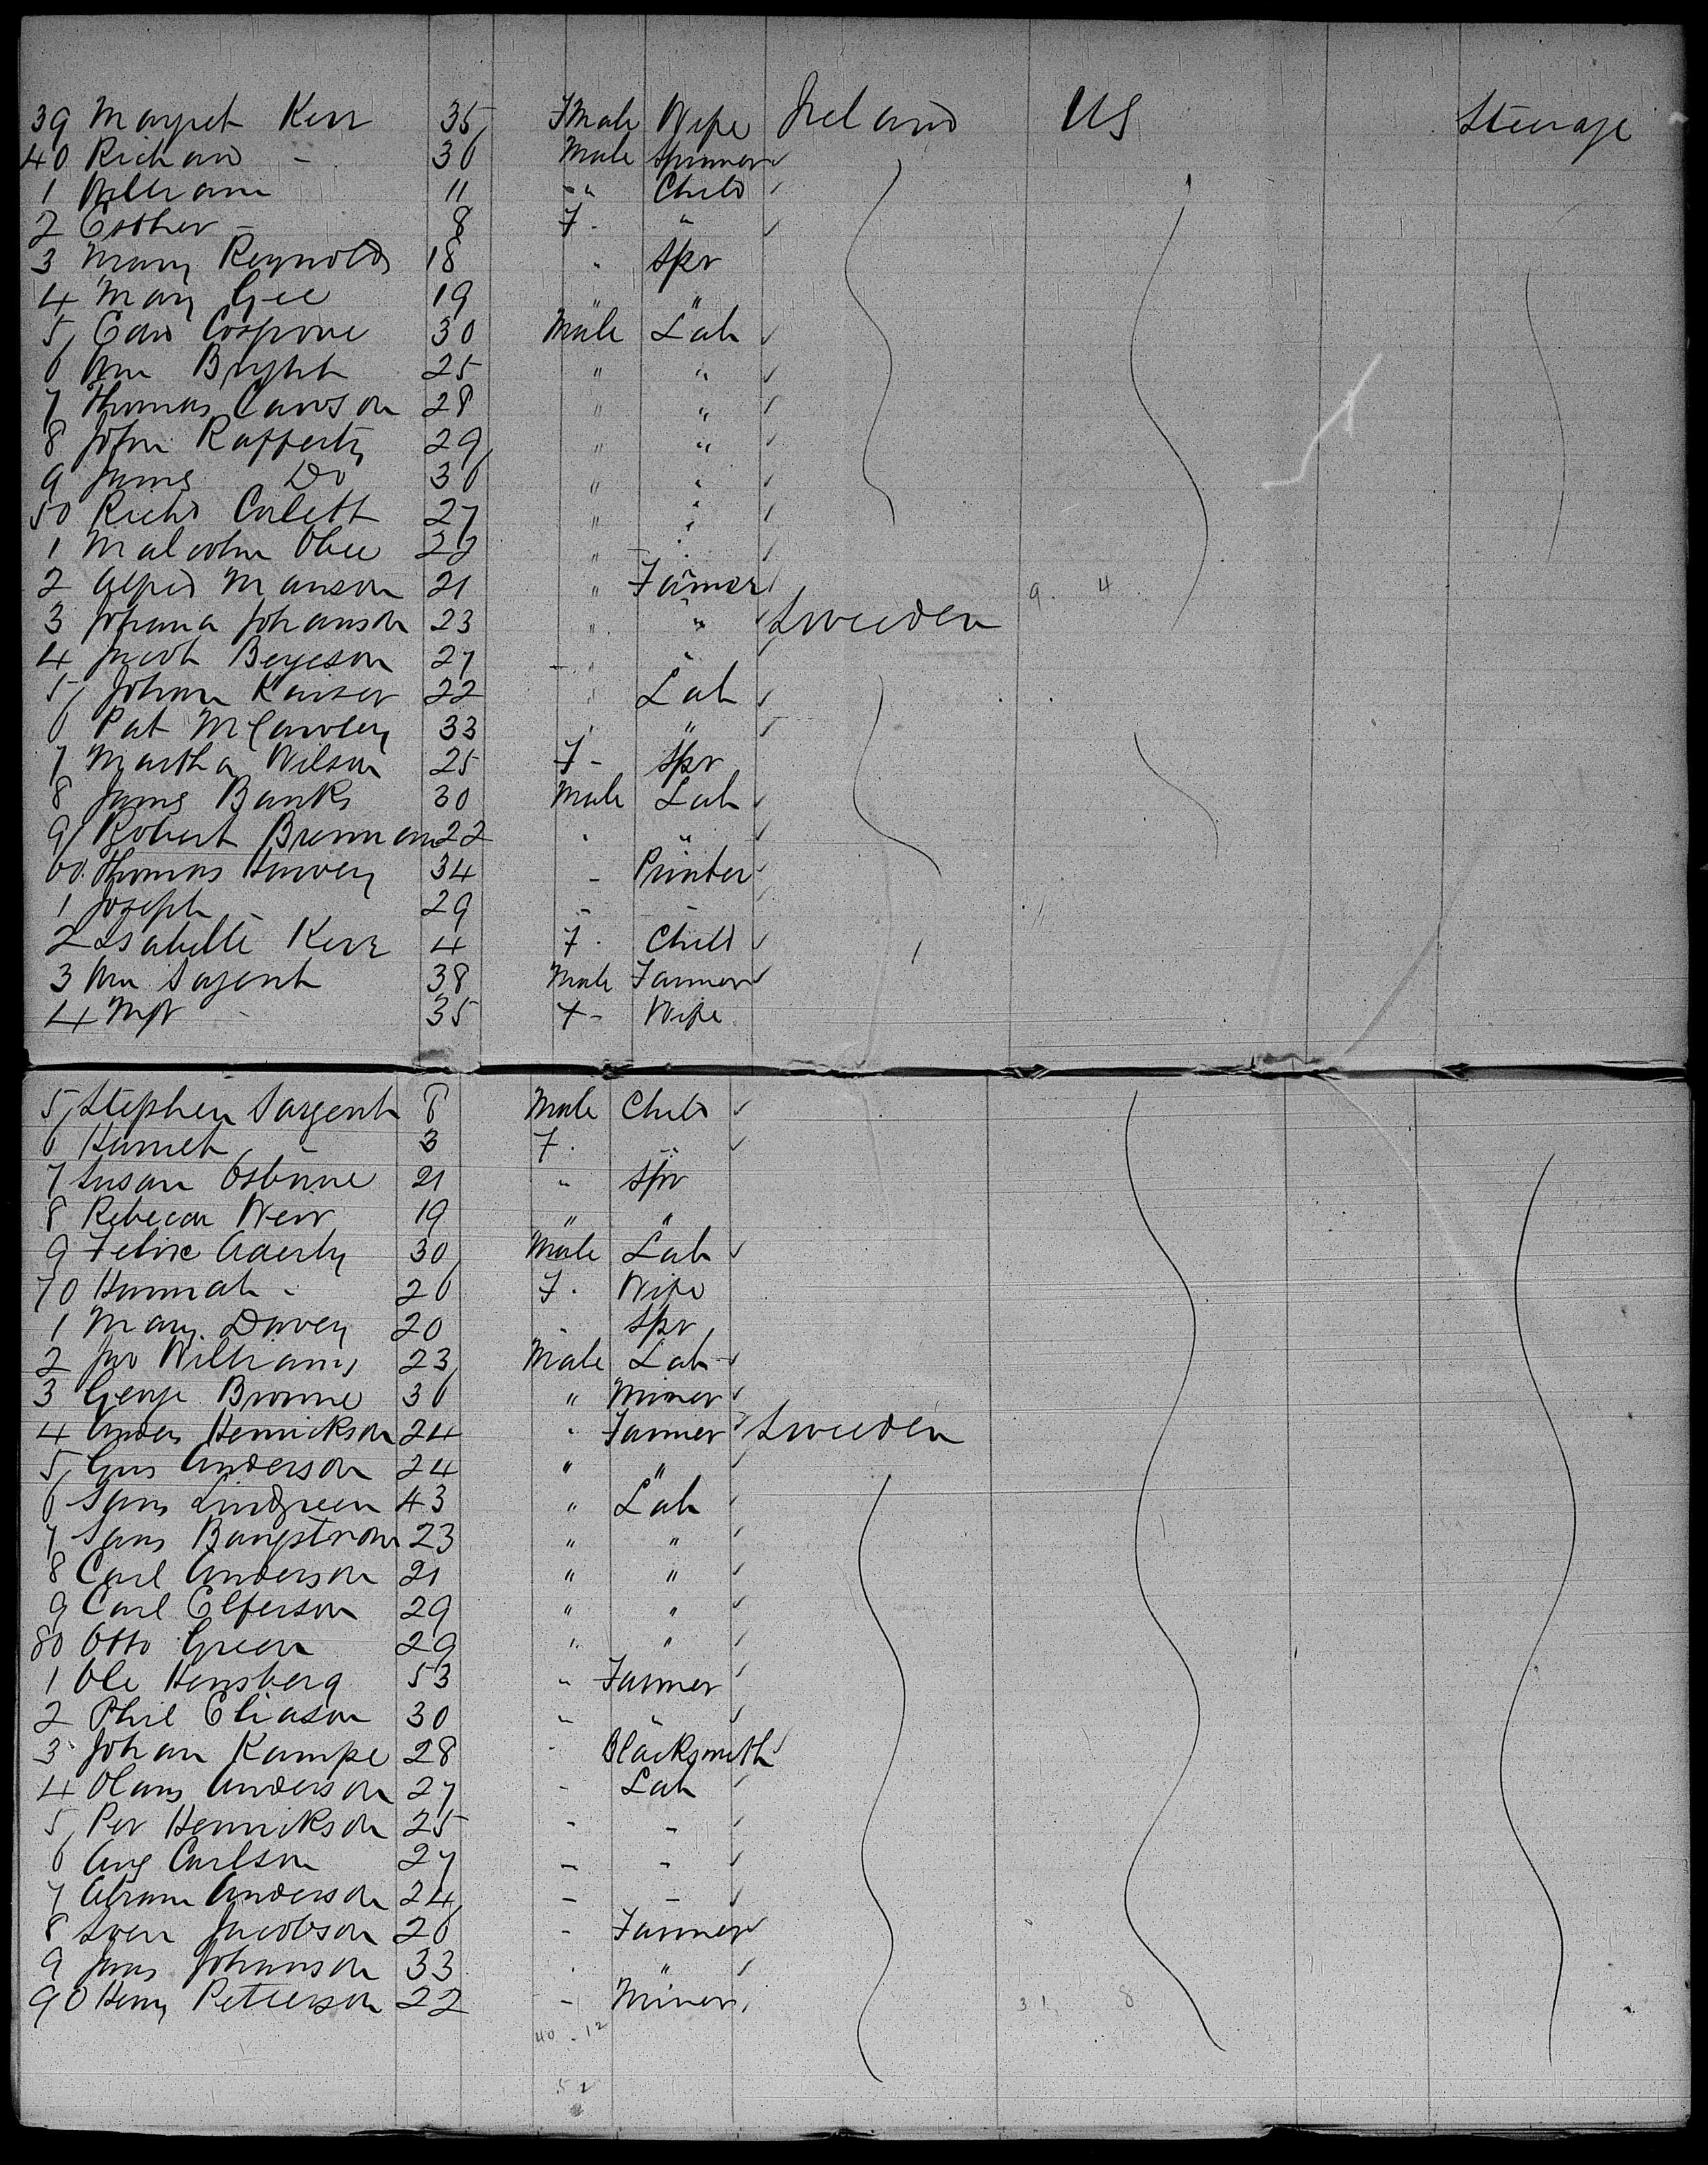 39 Margret Kerr 35 FMale Wife Ireland US Steerage
40 Richard - 36 Male Spinner
1 William 11 " Child
2 Esther - 8 F. "
3 Mary Reynolds 18 " Spr
4 Mary Gee 19 " "
5 Edwd Cosgrove 30 Male Lab
6 Wm Bright 25 " "
7 Thomas Cawson 28 " "
8 John Rafferty 29 " "
9 James Do 30 " "
50 Richd Corlett 27 " "
1 Malcolm 22 " "
2 Alfred Manson 21 " Farmer 9. 4
3 Johana Johanson 23 " " Sweeden
4 Jacob Bergeson 27 " "
5 Johan Kaiser 22 " Lab
6 Pat McCawley 33 " "
7 Martha Wilson 25 F- Spr
8 James Banks 30 Male Lab
9 Robert Brennan 22 " "
60 Thomas Harvey 34 - Printer
1 Joseph - 29 - -
2 Isabella Kerr 4 F. Child
3 Wm Sargent 38 Male Farmer
4 Mgt - 35 F- Wife
5 Stephen Sargent 8 Male Child
6 Harriet 3 F. "
7 Susan Osborne 21 " Spr
8 Rebecca Weir 19 " "
9 Felix 30 Male Lab
70 Hannah - 26 F. Wife
1 Mary Davey 20 - Spr
2 Jno Williams 23 Male Lab
3 George Browne 36 " Miner
4 Anders Henrickson 24 " Farmer Sweeden
5 Gus Anderson 24 " "
6 Sams Lindgreen 43 " Lab
7 Sams Bangstrom 23 " "
8 Carl Anderson 21 " "
9 Carl Elferson 29 " "
80 Otto Green 29 " "
1 Ole Hensberg 53 " Farmer
2 Phil Eliason 30 " "
3 Johan Kampe 28 - Blacksmith
4 Olaus Anderson 27 - Lab
5 Per Henrickson 25 - -
6 Aug Carlson 27 - -
7 Abram Anderson 24 - -
8 Sven Jacobson 26 - Farmer
9 Jonas Johanson 33 . "
90 Henry Petterson 22 - Miner 8
40 - 12
52